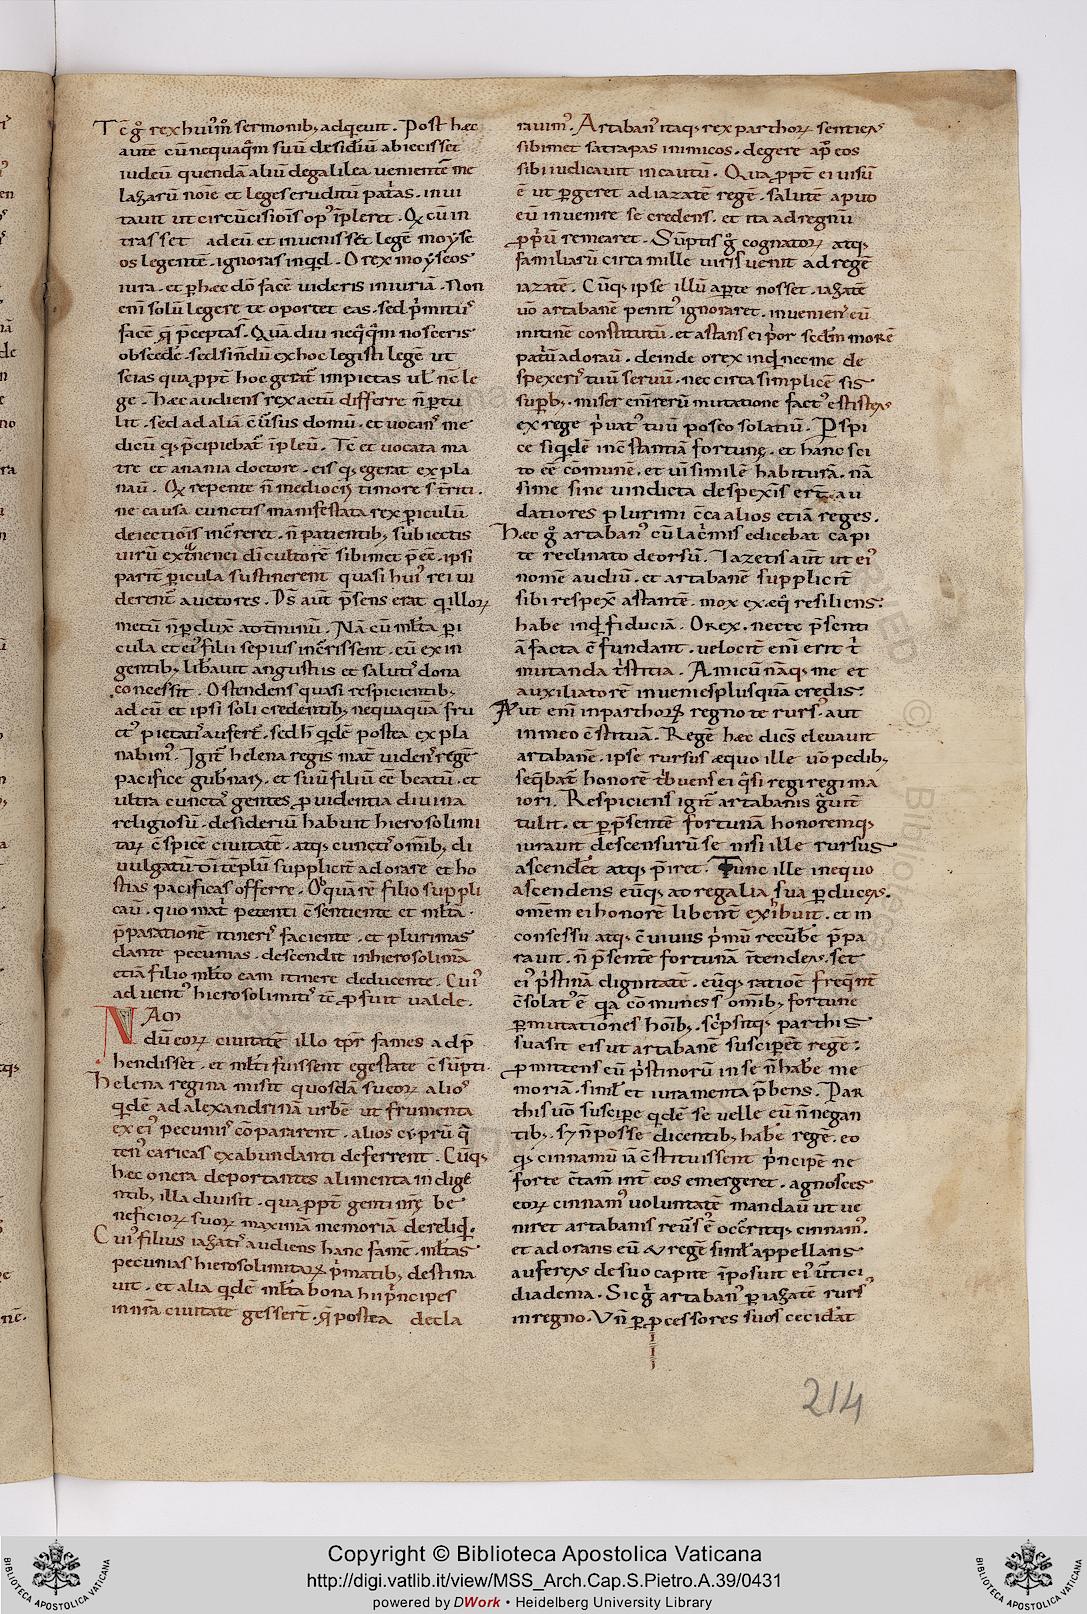 Tc̄ g̊ rex hui᷒m̊ sermonib; adqͥeuit. Post hec
aute cū nequaq̄m suū desidiū abiecisset
iudeū quendā aliū de galilea ueniente nn̄e
lazarū noīe et leges eruditū patͥas. inui
tauit ut circūcisioīs op᷒ īpleret. Qͥ cū in
trasset adeū et inuenisset legē moyse
os legentē. ignoras inqͥd. O rex moyseos
iura. et p̱ hec dō facē uideris iniuriā. Non
enī solū legere te oportet eas. sed pͥmitu᷒
facē q̄ p̄ceptas. Quā diu neqͥqͣm nosceris
obscede. sed sindū ex hoc legisti legē ut
scias qua pp̄t hoc gerat̄ impietas ul᷒ nc̄ le
ge. Hec audiens rex actū differre n̄ p̱tu
lit. sed ad aliā c̄uersus domū. et uocan᷒ me
dicū q; p̄cipiebat᷒ īpleū. Tc̄ et uocata ma
tre et anania doctore. eis q; egerat expla
nauͭ. Qͥ repente n̄ mediocr̄ timore s̄t̄riti.
ne causa cunctis manifestata rex p̱iculū
deiectioīs incͥreret. n̄ patientib; subiectis
uirū extͣnenei di᷒ cultorē sibimet p̄eē. ipsi
parit̄ p̱icula sustinerent quasi hui᷒ rei ui
derent auctores. Ds̄ aut̄ p̄sens erat qͥ illoꝝ
metū n̄ p̱duxͭ ad t᷒minū. Nā cū mlt̄a p̱i
cula et ei᷒ filii sepius incͥrissent. eū ex in
gentib; lib̄auit angustiis et saluti᷒ dona
concessit. Ostendens quasi respicientib;
ad eū et ipsi soli credentib; nequaquā fru
ct᷒ pietati᷒ auferet̄. sed h̄ qͥdē postea expla
nabim᷒. Igit̄ helena regis mat̄ uiden᷒ regē
pacifice gub̄narͥ. et suū filiū eē beatū. et
ultra cunctas gentes p̱uidentia diuina
religiosū. desideriū habuit hierosolimi
tarͫ c̄spicē ciuitatē. atq; cuncti᷒ om̄ib; di
uulgatū dī tēplū suppliciͭ adorare et ho
stias pacificas offerre. Ob quā rē filio suppli
cauͭ. quo matͥ petenti c̄sentiente et mlt̄a
p̄parationē itineri᷒ faciente. et plurimas
dante pecunias. descendit in hierosolimā
etiā filio mlt̄o eam itinere deducente. Cui᷒
aduent᷒ hierosolimiti᷒ tc̄ p̱fuit ualde.
NAm
dū eorͫ ciuitatē illo tpr̄ fames adp̄
hendisset. et mlt̄i fuissent egestate c̄sūpti.
helena regina misit quosdā sueorͫ alios
qͥdē ad alexandrinā urbē ut frumenta
ex ei᷒ pecuni᷒ cōpararent. alios cyprū qͥ
ten᷒ caricas ex abundanti deferrent. Cūq;
hec onera deportantes alimenta in dige
ntib; illa diuisit. qua pp̄t genti nr̄ę be
neficiorͫ suorͫ maximā memoriā dereliqͥ.
Cui᷒ filius iazat᷒ audiens hanc famē. mlt̄as
pecunias hierosolimitarͫ pͥmatib; destina
uit. et alia qͥdē mlt̄a bona hii pͥncipes
in nr̄a ciuitate gesserͭ. q̄ postea decla
rauim᷒. Artaban᷒ itaq; rex parthorꝫ sentiens
sibimet satrapas inimicos. degere apͩ eos
sibi iudicauit incautū. Qua pp̄t ei uisū
ē ut p̱geret ad iazatē regē. salutē aput
eū inuenire se credens. et ita ad regnū
pp̱ͥū remearet. Sūptis g̊ cognatorꝫ atq;
familiarū circa mille uiris uenit ad regē
iazatē. Cūq; ipse illū ap̱te nosset. iazatē
u̅o artabanē penit᷒ ignoraret. inuenien᷒ eū
initinē constitutū. et astans ei pͥor scd̄m morē
patͥū adorauͭ. deinde o rex inqͥd nec me de
spexeri᷒ tuū seruū. nec circa simplicē sis
sup̱b;. miser enī rerū mutatione fact᷒ est iste
ex rege pͥuat᷒ tuū posco solatiū. P̱spi
ce siqͥdē inc̄stantiā fortunę. et hanc sci
to eē cōmune. et uī similē habiturā. nā
si me sine uindicta despexis erͭ au
datiores plurimi c̄ca alios etiā reges.
Hec g̊ artaban᷒ cū lacͥmis edicebat capi
te reclinato deorsū. Iazetis aut̄ ut ei᷒
nomē audiuͭ. et artabanē suppliciͭ
sibi respexͭ astantē. mox ex eqͥ resiliens.
habe inqͥd fiduciā. O rex. necte p̄senti
ā facta c̄fundant. uelocit̄ enī erit tͥ
mutanda tͥstitia. Amicū nāq; me et
auxiliatorē inuenies plusquā credis.
Aut enī in parthorꝫ regno te rurs᷒. aut
in meo c̄stituā. Regē hec dicēs eleuauit
artabanē. ipse rursus æquo ille u̅o pedib;
seqͥbat᷒ honorē tͥbuens ei qͣsi regi regi ma
iori. Respiciens igit̄ artabanis gͣuit̄
tulit. et p̱ p̄sentē fortunā honoremq;
iurauit descensurū se nisi ille rursus
ascenderet atq; p̄iret. Tunc ille in equo
ascendens eūq; ad regalia sua p̱ducens.
omēm ei honorē libent̄ exͥbuit. et in
consessu atq; c̄uiuiis pͥmū recūbe᷒ p̄pa
rauit. n̄ p̄sentē fortunā ītendens. set
ei᷒ pͥstinā dignitatē. eūq; ratioē freqͥnt̄
c̄solat᷒ ē qͥa cōmunes s̄ om̄ib; fortune
p̱mutationes hoīb;. scͥpsitq; parthis
suasit eis ut artabanē suscip̱et regē.
p̱mittens eū pͥstinorū in se n̄ habē me
moriā. simlͥ et iuramenta p̄bens. Par
this u̅o suscipe qͥdē se uelle eū n̄ negan
tib;. s; n̄ posse dicentib; habē regē. eo
q; cinnamū iā c̄stituissent pͥncipē ne
forte c̄tam̄ int̄ eos emergeret. agnosces
eorꝫ cinnam᷒ uoluntatē mandauͭ ut ue
niret artabanis reūs᷒ ē occͥritq; cinnam᷒.
et adorans eū & regē simlͥ appellans
auferens de suo capite īposuit ei᷒ ūtici
diadema. Sic g̊ artaban᷒ p̱ iazatē rurs᷒
in regno. Vn̄ p̱ p̱cessores suos cecidat̄
214
Copyright © Biblioteca Apostolica Vaticana
http://digi.vatlib.it/view/MSS_Arch.Cap.S.Pietro.A.39/0431
powered by DWork • Heidelberg University Library